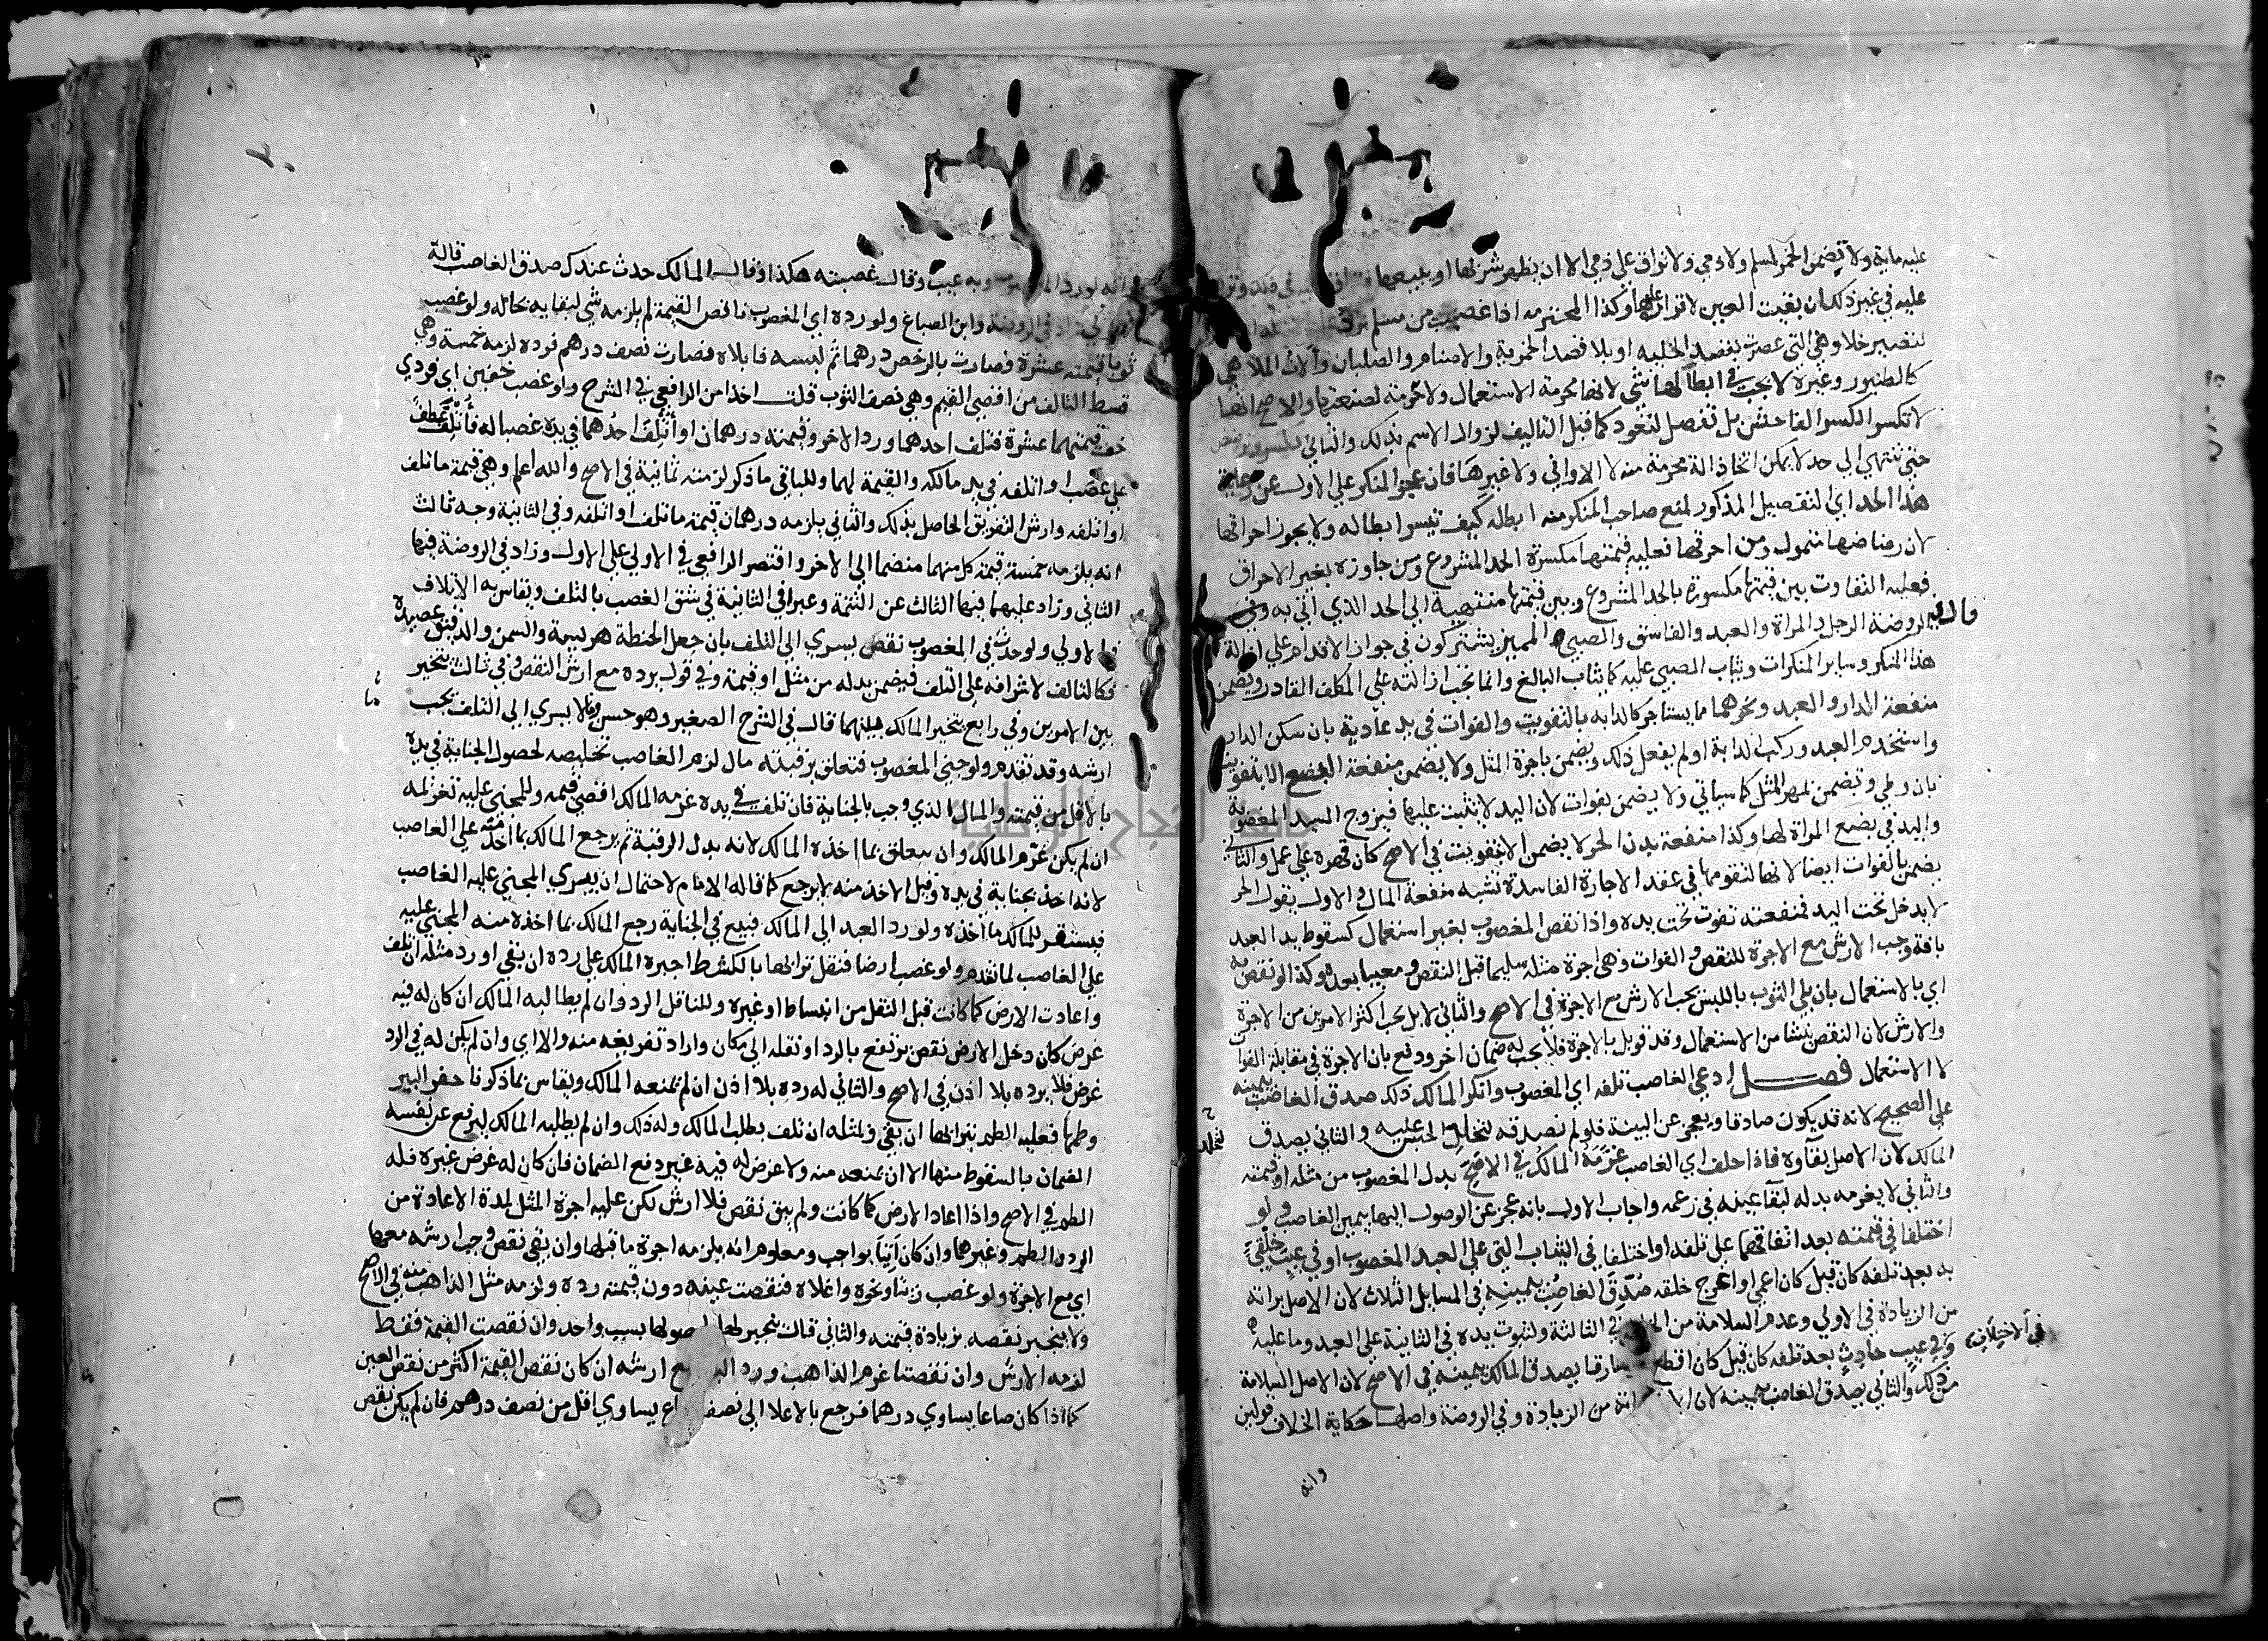 عليه مابه ولا تضمن الخمر لمسلم ولا ذمي ولا تراق علي ذمي الا ان يظهر شربها او بيعها
عليه في غير ذلك ان بقيت العين لاقراره عليها وكذا المحترمه اذا غصبت من مسلم ترد عليه
لتصير خلا وهي التي عصرت بقصد الخليه او بلا قصد الخمرية والاصنام والصلبان وآلات الملاهي
كالطنبور وغيره لا يجب في ابطالها شي لانها محرمة الاستعمال ولا حرمة لصنعتها والاصح انها
لا تكسر الكسر الفاحش بل تفصل لتعود كما قبل التاليف لزوال الاسم بذلك والثاني تكسر وترضض
حتي تنتهي الي حد لا يمكن اتخاذ الة محرمة منه لا الاولي ولا غيرها فان عجز المنكر علي الاول عن رعاية
هذا الحد اي التفصيل المذكور لمنع صاحب المنكر منه ابطله كيف تيسر ابطاله ولا يجوز احراقها
لان رضاضها متمول ومن احرقها فعليه قيمتها مكسرة الحد المشروع ومن جاوزه بغير الاحراق
فعليه التفاوت بين قيمتها مكسورة بالحد المشروع وبين قيمتها منتهية الي الحد الذي اتي به وفي
قال في الروضة الرجل والمراة والعبد والفاسق والصبي المميز يشتركون في جواز الاقدام علي ازالة
هذا المنكر وساير المنكرات ويثاب الصبي عليه كما يثاب البالغ وانما تجب ازالته علي المكلف القادر وتضمن
منفعة الدار والعبد ونحوهما مما يستاجر كالدابه بالتفويت والفوات في يد عادية بان سكن الدار
واستخدم العبد وركب الدابة او لم يفعل ذلك ويضمن باجرة المثل ولا يضمن منفعة البضع الا بتفويت
بان وطي وتضمن بمهر المثل كما سياتي ولا يضمن بفوات لان اليد لا يثبت عليها فيزوج السيد المغصوبة
واليد في بضع المراة لها وكذا منفعة بدن الحر لا يضمن الا بتفويت في الاصح كان قهره علي عمل والثاني
يضمن بالفوات ايضا لانها لتقومها في عقد الاجارة الفاسدة تشبه منفعة المال والاول يقول الحر
لا يدخل تحت اليد فمنفعته تفوت تحت يده واذا نقص المغصوب بغير استعمال كسقوط يد العبد
بافة وجب الارش مع الاجرة للنقص والفوات وهي اجرة مثله سليما قبل النقص ومعيبا بعده وكذا لو نقص به
اي بالاستعمال بان بلي الثوب باللبس يجب الارش مع الاجرة في الاصح والثاني لا بل يجب اكثر الامرين من الاجرة
والارش لان النقص ينشا من الاستعمال وقد قوبل بالاجرة فلا يجب له ضمان اخر ودفع بان الاجرة في مقابلة الفوات
لا الاستعمال فصل ادعي الغاصب تلفه اي المغصوب وانكر المالك ذلك صدق الغاصب بيمينه
علي الصحيح لانه قد يكون صادقا ويعجز عن البينة فلو لم نصدقه لتخلد الحبس عليه والثاني يصدق
المالك لان الاصل بقاوه فاذا حلف اي الغاصب غرمه المالك في الاصح بدل المغصوب من مثله او قيمته
والثاني لا يغرمه بدله لبقا عينه في زعمه واجاب الاول بانه عجز عن الوصول اليها بيمين الغاصب ولو
اختلفا في قيمته بعد اتفاقهما علي تلفه او اختلفا في الثياب التي علي العبد المغصوب او في عيب خلقي
به بعد تلفه كان قيل كان اعمي او اعرج خلقه صدق الغاصب بيمينه في المسايل الثلاث لان الاصل براته
من الزيادة في الاولي وعدم السلامة من في الثالثة ولثبوت يده في الثانية علي العبد وما عليه
وفي عيب حادث بعد تلفه كان قيل كان اقطع سارقا يصدق المالك بيمينه في الاصح لان الاصل السلامة
من ذلك والثاني يصدق الغاصب بيمينه لان من الزيادة وفي الروضة واصلها حكاية الخلاف قولين
وانه
وانه لو رد المغصوب وبه عيب وقال غصبته هكذا وقال المالك حدث عندك صدق الغاصب قاله
زاد في الروضة وابن الصباغ ولو رده اي المغصوب ناقص القيمة لم يلزمه شي لبقايه بحاله ولو غصب
ثوبا قيمته عشرة فصارت بالرخص درهما ثم لبسه فابلاه فصارت نصف درهم فرده لزمه خمسة وهي
قسط التالف من اقصي القيم وهي نصف الثوب قلت اخذا من الرافعي في الشرح ولو غصب خفين اي فردي
خف قيمتهما عشرة فتلف احدهما ورد الاخر وقيمته درهمان او اتلف احدهما في يده غصبا له فاتلف عطف
علي غصب او اتلفه في يد مالكه والقيمة لهما وللباقي ما ذكر لزمته ثمانية في الاصح والله اعلم وهي قيمة ما تلف
او اتلفه وارش التفريق الحاصل بذلك والثاني يلزمه درهمان قيمة ما تلف او اتلفه وفي الثانية وجه ثالث
انه يلزمه خمسة قيمة كل منهما منضما الي الاخر واقتصر الرافعي في الاولي علي الاول وزاد في الروضة فيها
الثاني وزاد عليهما فيها الثالث عن التتمة وعبرا في الثانية في شق الغصب بالتلف ويقاس به الاتلاف
في الاولي ولو حدث في المغصوب نقص يسري الي التلف بان جعل الحنطة هريسة والسمن والدقيق عصيدة
فكالتالف لاشرافه علي التلف فيضمن بدله من مثل او قيمة وفي قول يرده مع ارش النقص وفي ثالث يتخير
بين الامرين وفي رابع يتخير المالك بينهما قال في الشرح الصغير وهو حسن وما لا يسري الي التلف يجب
ارشه وقد تقدم ولو جني المغصوب فتعلق برقبته مال لزم الغاصب تخليصه لحصول الجناية في يده
بالاقل من قيمته والمال الذي وجب بالجناية فان تلف في يده غرمه المالك اقصي قيمه وللمجني عليه تغريمه
ان لم يكن غرم المالك وان يتعلق بما اخذه المالك لانه بدل الرقبة ثم يرجع المالك بما اخذ منه علي الغاصب
لانه اخذ بجناية في يده وقبل الاخذ منه لا يرجع كما قاله الامام لاحتمال ان يبري المجني عليه الغاصب
فيستقر للمالك ما اخذه ولو رد العبد الي المالك فبيع في الجناية رجع المالك بما اخذه منه المجني عليه
علي الغاصب لما تقدم ولو غصب ارضا فنقل ترابها بالكشط اجبره المالك علي رده ان بقي او رد مثله ان تلف
واعادت الارض كما كانت قبل النقل من انبساط او غيره وللناقل الرد وان لم يطالبه المالك ان كان له فيه
غرض كان دخل الارض نقص يرتفع بالرد او نقله الي مكان واراد تفريغه منه والا اي وان لم يكن له في الرد
غرض فلا يرده بلا اذن في الاصح والثاني له رده بلا اذن ان لم يمنعه المالك ويقاس بما ذكرنا حفر البير
وطمها فعليه الطم بترابها ان بقي وبمثله ان تلف بطلب المالك وله ذلك وان لم يطلبه المالك ليدفع عن نفسه
الضمان بالسقوط منها الا ان يمنعه منه ولا غرض له فيه غير دفع الضمان فان كان له غرض غيره فله
الطم في الاصح واذا اعاد الارض كما كانت ولم يبق نقص فلا ارش لكن عليه اجرة المثل لمدة الاعادة من
الرد والطم وغيرهما وان كان اتيا بواجب ومعلوم انه يلزمه اجرة ما قبلها وان بقي نقص وجب ارشه معها
اي مع الاجرة ولو غصب زيتا ونحوه واغلاه فنقصت عينه دون قيمته رده ولزمه مثل الذاهب منه في الاصح
ولا ينجبر نقصه بزيادة قيمته والثاني قال ينجبر بها لحصولها بسبب واحد وان نقصت القيمة فقط
لزمه الارش وان نقصتا غرم الذاهب ورد الباقي مع ارشه ان كان نقص القيمة اكثر من نقص العين
كما اذا كان صاعا يساوي درهما فرجع بالاغلا الي نصف صاع يساوي اقل من نصف درهم فان لم يكن نقص